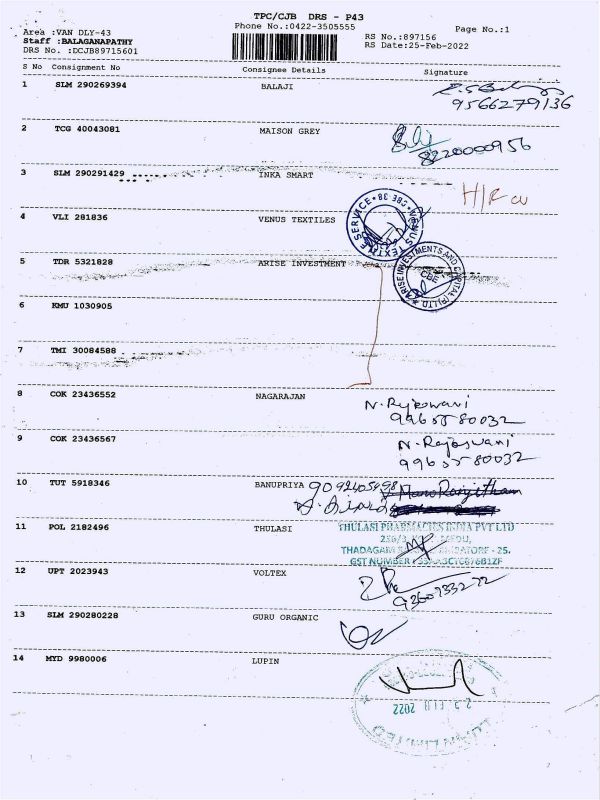 TPC/CJB DRS - P43
Phone No.:0422-3505555
Page No.:1
Area :VAN DLY-43
RS No.:897156
Staff :BALAGANAPATHY
RS Date:25-Feb-2022
DRS No. :DCJB89715601
S No Consignment No Consignee Details Signature
1 SLM 290269394 BALAJI
9566279136
2 TCG 40043081 MAISON GREY
8220000956
3 SLM 290291429 INKA SMART
4 VLI 281836 VENUS TEXTILES
VENUS TEXTILE SERVICE CBE-38
5 TDR 5321828 ARISE INVESTMENT
ARISE INVESTMENTS AND CAPITAL (P) LTD. CBE
6 KMU 1030905
7 TMI 30084588
8 COK 23436552 NAGARAJAN
N. Rajeswari
9965580032
9 COK 23436567
N. Rajeswari
9965580032
10 TUT 5918346 BANUPRIYA 9092405498
11 POL 2182496 THULASI
THULASI PHARMACIES INDIA PVT LTD
THADAGAM
- 25.
GST NUMBER
12 UPT 2023943 VOLTEX
13 SLM 290280228 GURU ORGANIC
14 MYD 9980006 LUPIN
23 FEB 2022
LUPIN LIMITED